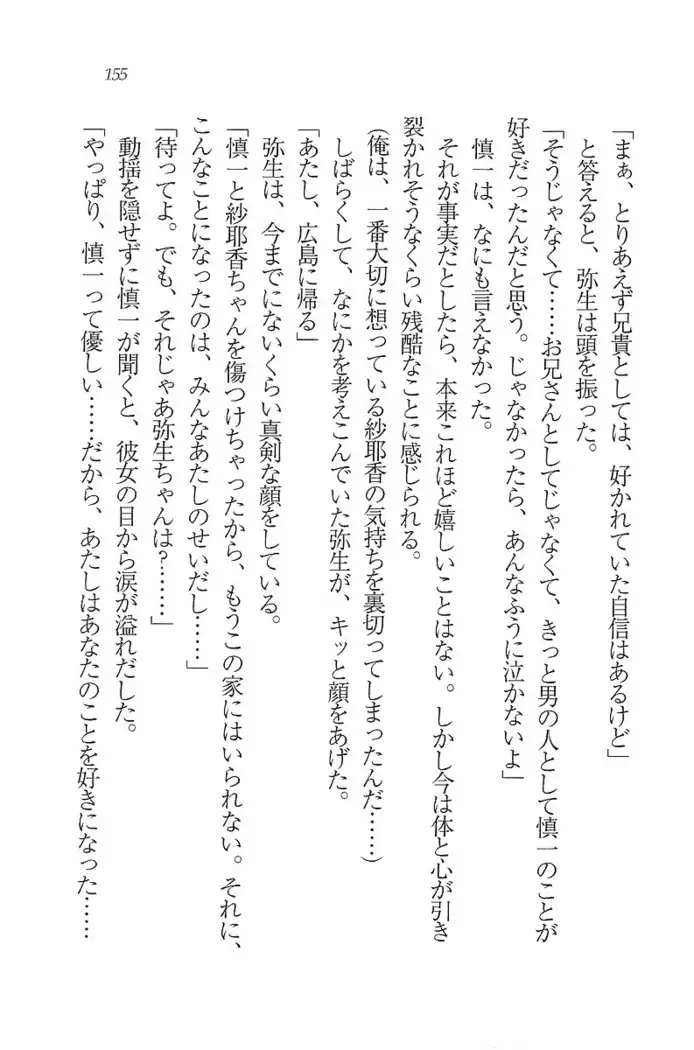 155
「まぁ、とりあえず兄貴としては、好かれていた自信はあるけど」
と答えると、弥生は頭を振った。
「そうじゃなくて……お兄さんとしてじゃなくて、きっと男の人として慎一のことが
好きだったんだと思う。じゃなかったら、あんなふうに泣かないよ」
慎一は、なにも言えなかった。
それが事実だとしたら、本来これほど嬉しいことはない。しかし今は体と心が引き
裂かれそうなくらい残酷なことに感じられる。
(俺は、一番大切に想っている紗耶香の気持ちを裏切ってしまったんだ……)
しばらくして、なにかを考えこんでいた弥生が、キッと顔をあげた。
「あたし、広島に帰る」
弥生は、今までにないくらい真剣な顔をしている。
「慎一と紗耶香ちゃんを傷つけちゃったから、もうこの家にはいられない。それに、
こんなことになったのは、みんなあたしのせいだし……」
「待ってよ。でも、それじゃあ弥生ちゃんは?……」
動揺を隠せずに慎一が聞くと、彼女の目から涙が溢れだした。
「やっぱり、慎一って優しい……だから、あたしはあなたのことを好きになった……